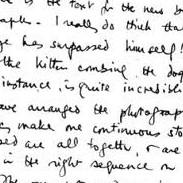 is the text for the new b
I really do think tha
ge has surpassed himself!
the kitten combing the dog
instance, is quite incredible
ave arranged the photograp
make me continuous sto
sed are all together, & are
in the right sequence in